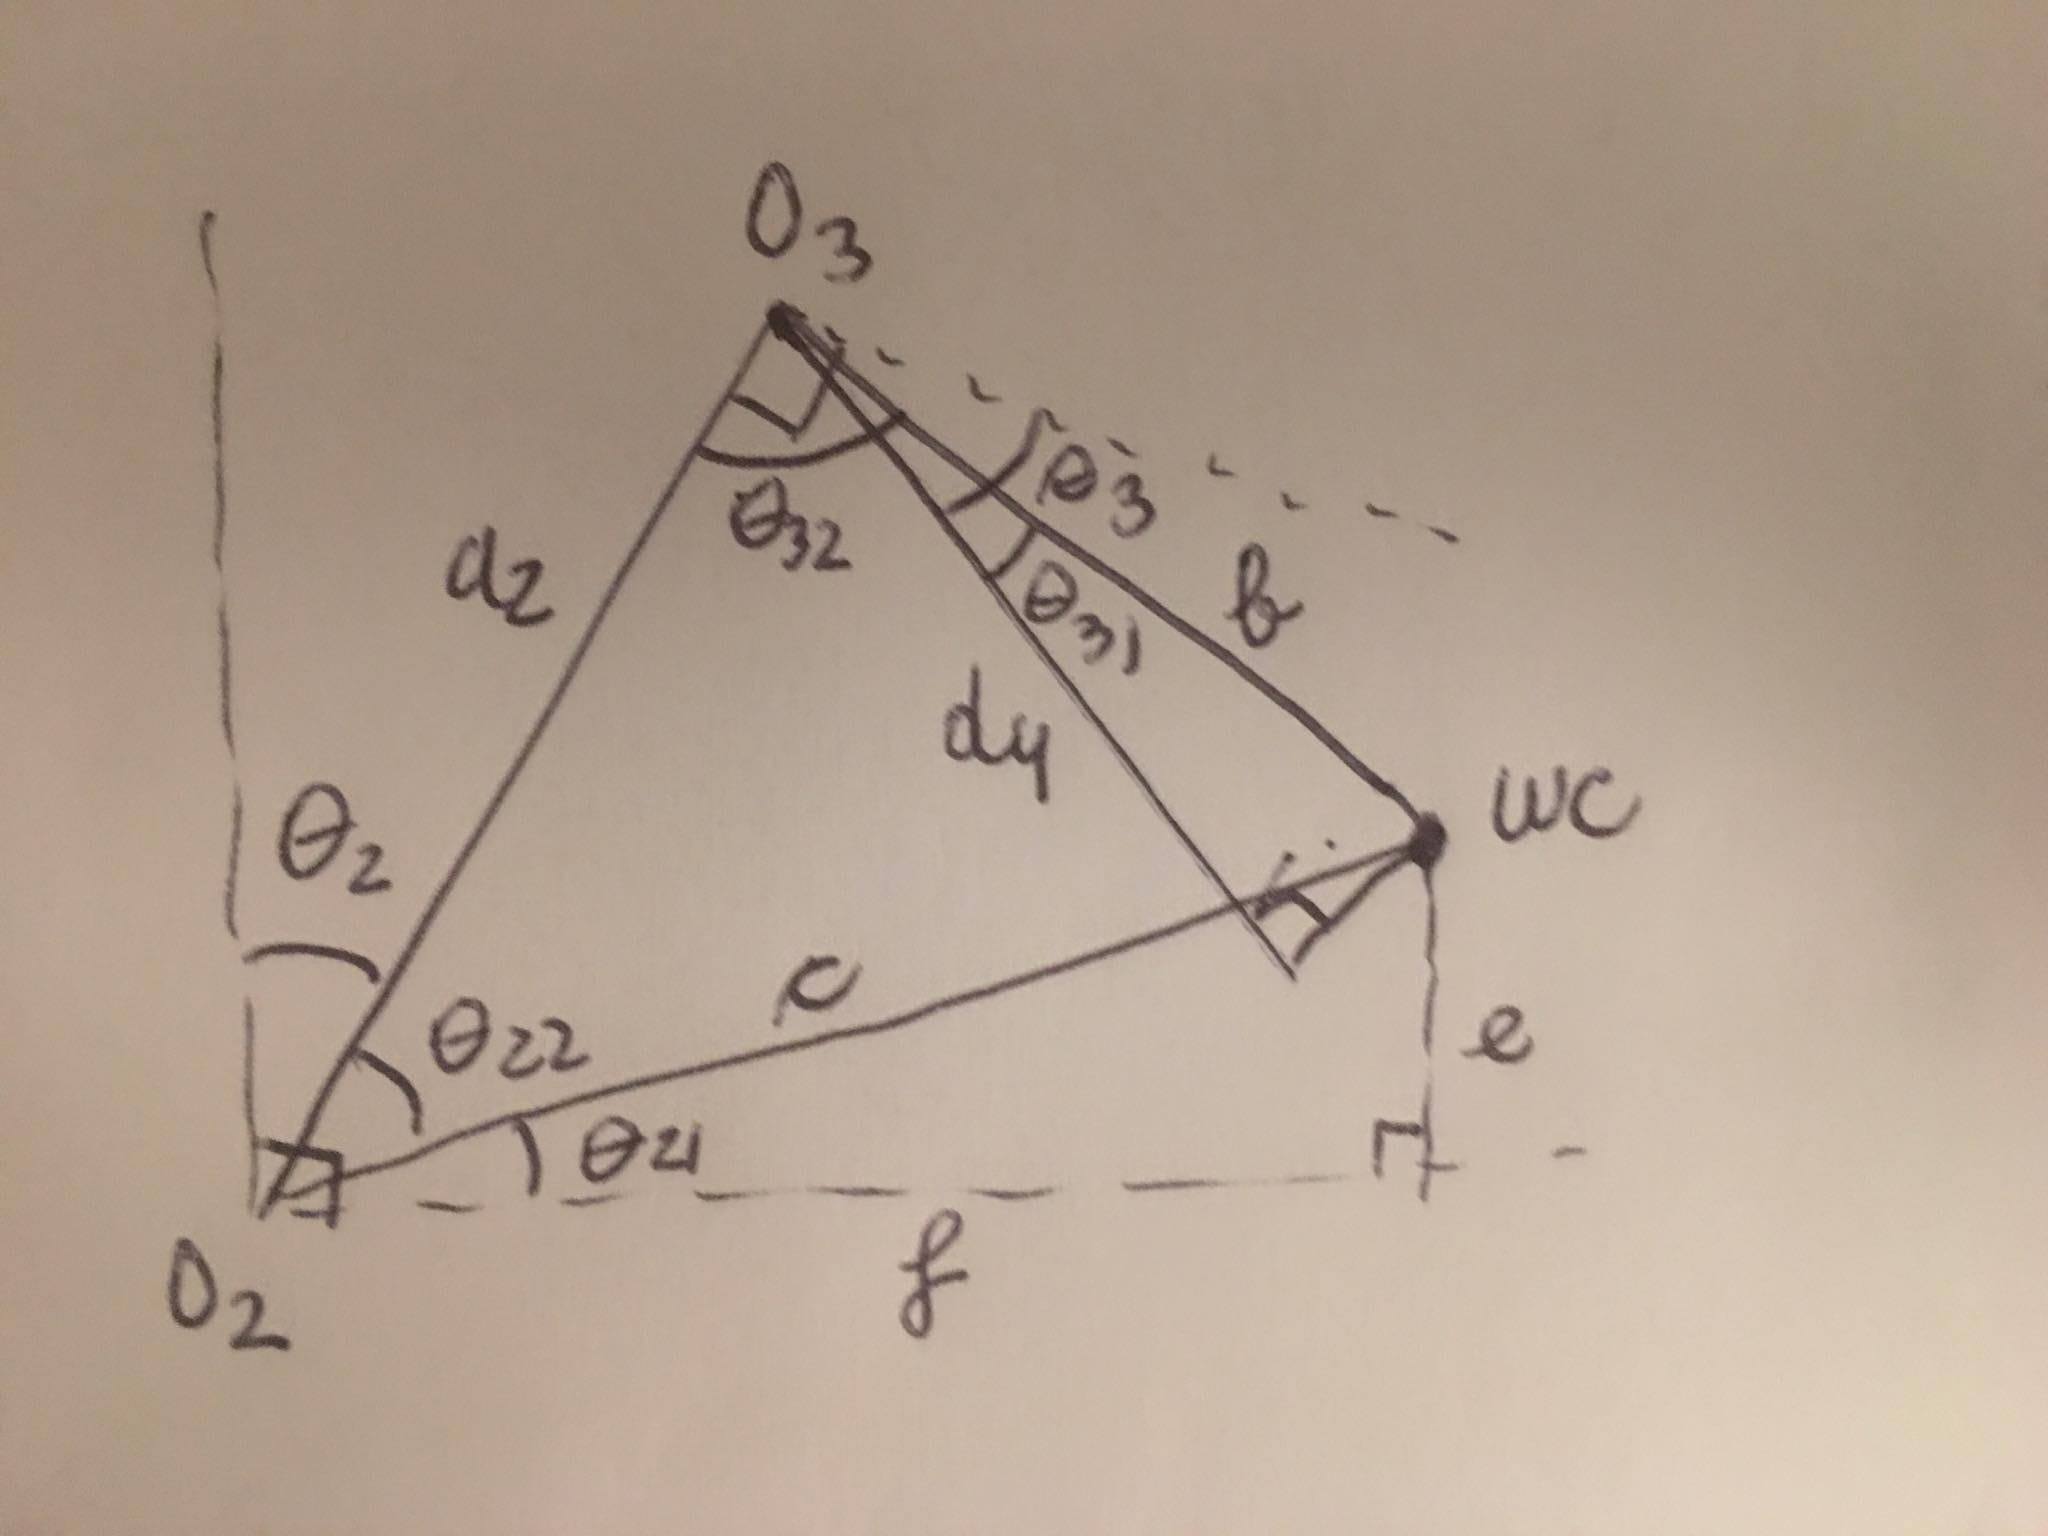 O3
θ3
θ32
d2
b
θ31
d4
WC
θ2
c
e
θ22
θ21
O2
f